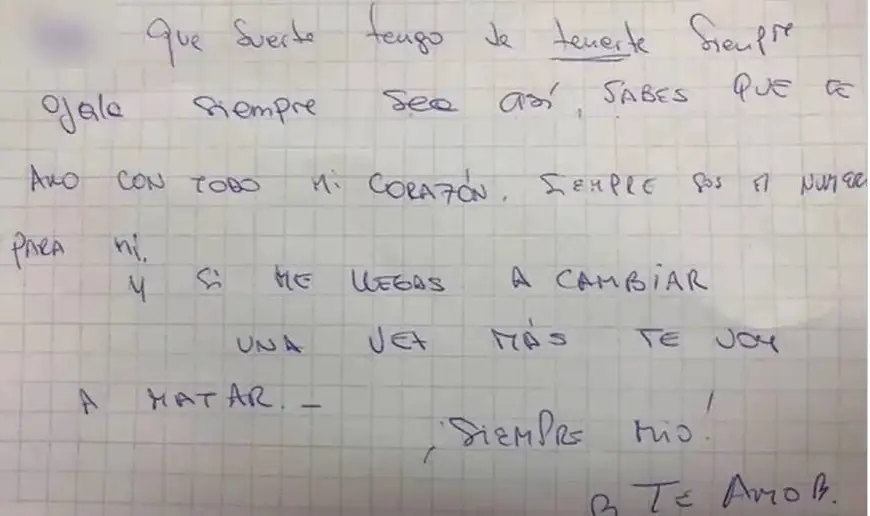 Que Suerte tengo de tenerte Siempre
Ojala siempre sea así, SABES QUE TE
AMO CON TODO Mi CORAZÓN. SIEMPRE SOS El NUMER
PARA mi.
Y Si ME LLEGAS A CAMBiAR
UNA VEZ MÁS TE VOY
A MATAR. _
¡SiEMPRE Mio!
B TE AMO B.